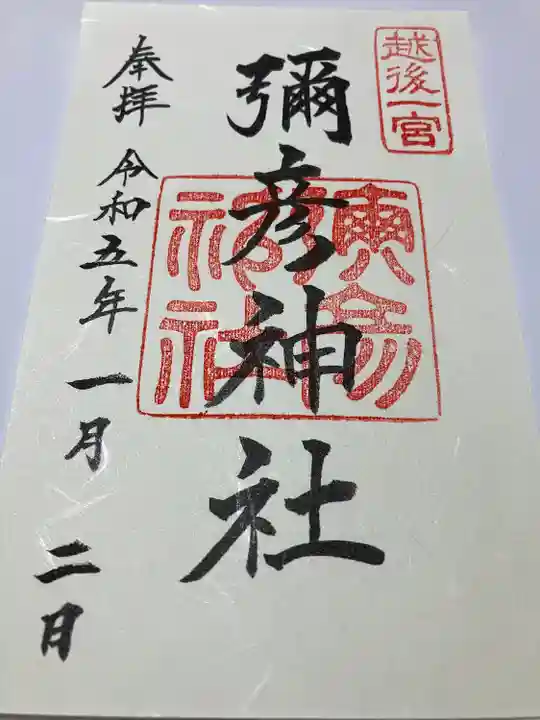 越後一宮
彌彦神社
奉拝 令和五年一月二日